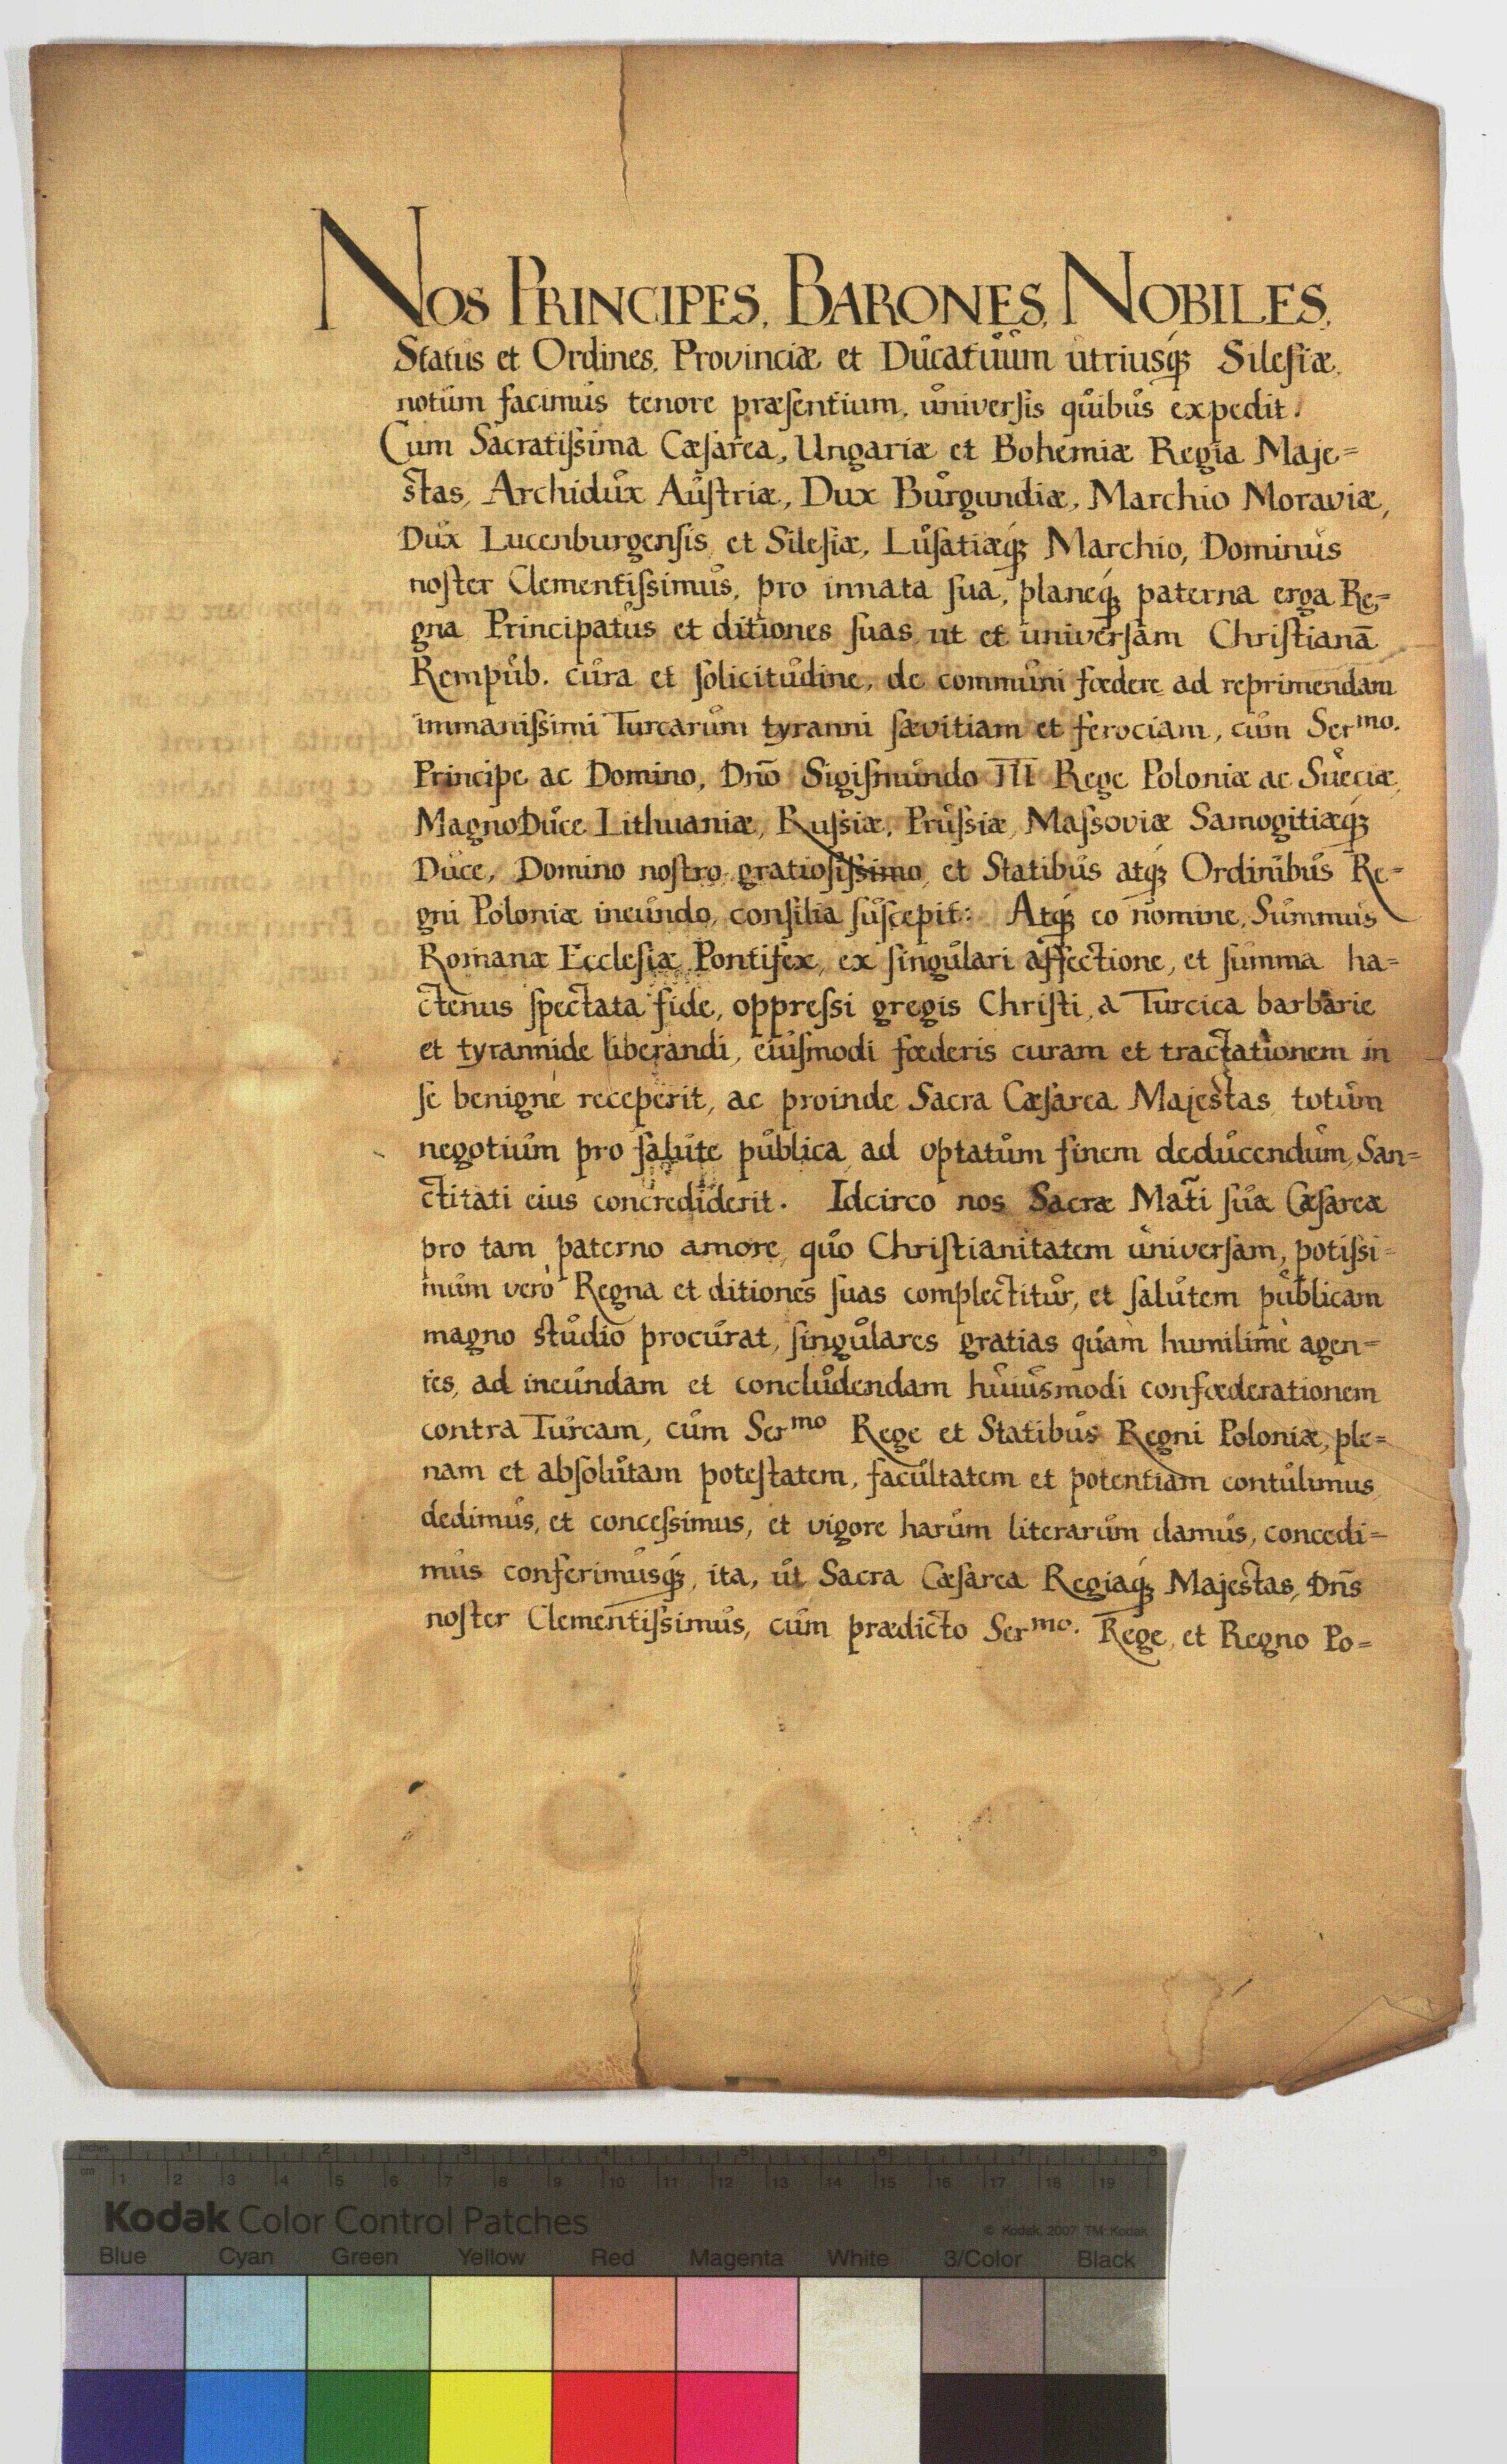 NOS PRINCIPES, BARONES, NOBILES,
Status et Ordines, Provinciæ et Ducatuum utriusq́ꝫ Silesiæ,
notum facimus tenore præsentium, universis quibus expedit.
Cum Sacratiſsima Cæſarea, Ungariæ et Bohemiæ Regia Maje=
ſtas, Archidux Auſtriæ, Dux Burgundiæ, Marchio Moraviæ,
Dux Lucenburgenſis et Sileſiæ, Luſatiæq́ꝫ Marchio, Dominus
noſter Clementiſsimus, pro innata ſua, planeq́ꝫ paterna erga Re=
gna Principatus et ditiones ſuas ut et univerſam Chriſtianā
Rempub. cura et ſolicitudine, de communi fœdere ad reprimendam
immaniſsimi Turcarum tyranni ſævitiam et ferociam, cum Serᵐᵒ.
Principe ac Domino, Dnō Sigiſmundo III Rege Poloniæ ac Sueciæ,
Magno Duce Lithuaniæ, Ruſsiæ, Pruſsiæ, Maſsoviæ Samogitiæq́ꝫ
Duce, Domino noſtro gratioſiſsimo, et Statibus atq́ꝫ Ordinibus Re=
gni Poloniæ ineundo, conſilia ſuſcepit: Atq́ꝫ eo nomine, Summus
Romanæ Eccleſiæ Pontifex, ex ſingulari affectione, et ſumma ha=
ctenus ſpectata fide, oppreſsi gregis Chriſti, a Turcica barbarie
et tyrannide liberandi, eiuſmodi fœderis curam et tractationem in
ſe benignè receperit, ac proinde Sacra Cæſarea Majeſtas totum
negotium pro ſalute publica ad optatum finem deducendum, San=
ctitati eius concrediderit. Idcirco nos Sacræ Matĩ ſuæ Cæſareæ
pro tam paterno amore, quo Chriſtianitatem univerſam, potiſsi=
mum verò Regna et ditiones ſuas complectitur, et ſalutem publicam
magno ſtudio procurat, ſingulares gratias quàm humilimè agen=
tes, ad ineundam et concludendam huiusmodi confœderationem
contra Turcam, cum Serᵐᵒ Rege et Statibus Regni Poloniæ, ple=
nam et abſolutam poteſtatem, facultatem et potentiam contulimus
dedimus, et conceſsimus, et vigore harum literarum damus, concedi=
mus conferimusq́ꝫ, ita, ut Sacra Cæſarea Regiaq́ꝫ Majeſtas, Dns̄
noſter Clementiſsimus, cum prædicto Serᵐᵒ. Rege, et Regno Po=
inches 1 2 3 4 5 6 7 8
cm 1 2 3 4 5 6 7 8 9 10 11 12 13 14 15 16 17 18 19
Kodak Color Control Patches
© Kodak, 2007 TM: Kodak
Blue Cyan Green Yellow Red Magenta White 3/Color Black